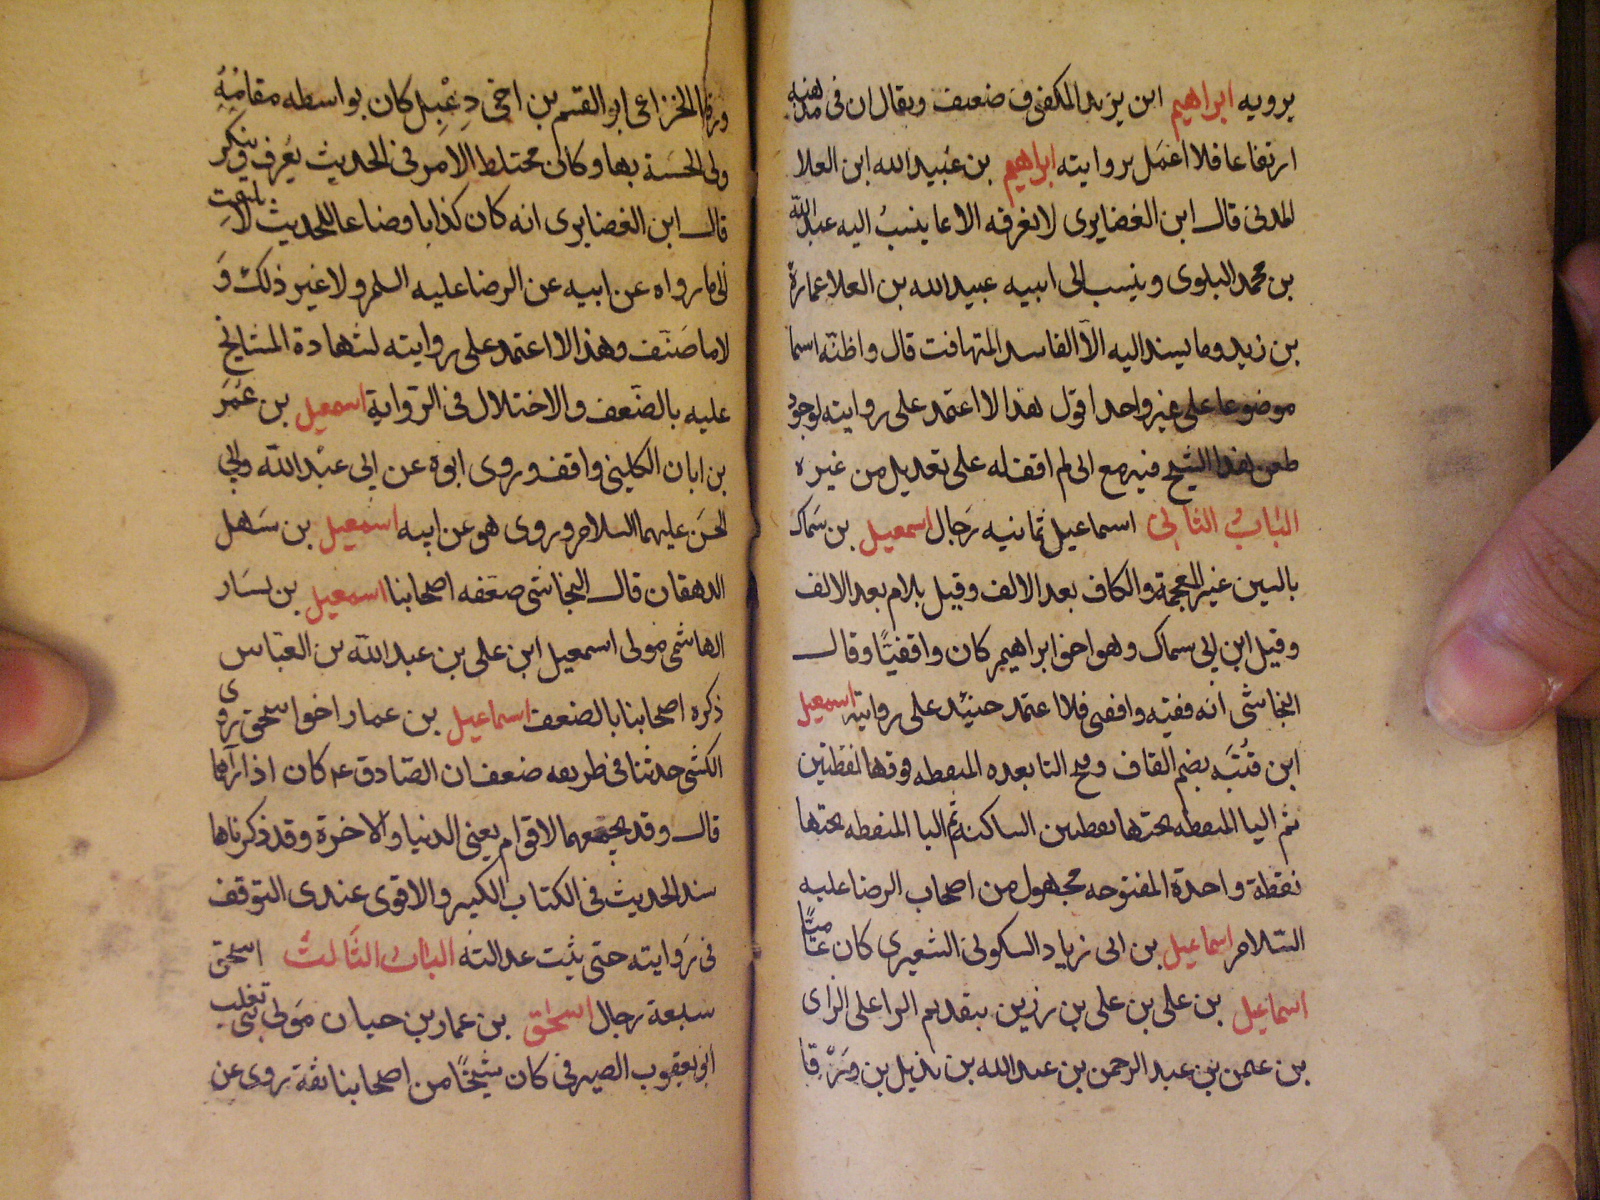 يرويه ابراهيم ابن يزيد المكفوف ضعيف ويقال ان فى مذهبه
ارتفاعا فلا اعمل بروايته ابراهيم بن عبيد الله ابن العلا
المدنى قال ابن الغضايرى لا نعرفه الا بما ينسب اليه عبد الله
بن محمد البلوى وينسب الى ابيه عبيد الله بن العلا عمارة
بن زيد وما يسند اليه الا الفاسد المتهافت قال واظنه اسما
موضوعا على غير واحد اقول لهذا لا اعتمد على روايته لوجود
طعن هذا الشيخ فيه مع انى لم اقف له على تعديل من غيره
الباب الثانى اسماعيل ثمانيه رجال اسمعيل بن سماك
بالسين غير المعجمة والكاف بعد الالف وقيل بلام بعد الالف
وقيل ابن ابى سماك وهو اخو ابراهيم كان واقفيًا وقال
النجاشى انه فقيه واقفى فلا اعتمد حنيئد على روايته اسمعيل
ابن قُتَيبَه بضم القاف وفتح التا بعده المنقطه فوقها نقطتين
ثم اليا المنقطه تحتها نقطتين الساكنه ثم البا المنقطه تحتها
نقطة واحدة المفتوحه مجهول من اصحاب الرضا عليه
السلام اسماعيل بن ابى زياد السكونى الشعيرى كان عاميًّا
اسماعيل بن على بن على بن رزين بتقديم الرا على الزاى
بن عثمن بن عبد الرحمن بن عبد الله بن بذيل بن ورقا
ورقا الخزاعى ابو القسم بن اخى دِعْبِل كان بواسطه مقامُهُ
ولى الحسَبة بها وكان مختلط الامر فى الحديث يعرف وينكر
قال ابن الغضايرى انه كان كذابا وضاعا للحديث لا يلتفت
الى ما رواه عن ابيه عن الرضا عليه السلم ولا غير ذلك وَ
لا ما صَنّف وهذا لا اعتمد على روايته لشهادة المشايخ
عليه بالضّعف والاختلال فى الرّواية اسمعيل بن عُمَرَ
بن ابان الكلبى واقف وروى ابوه عن ابى عبد الله وابى
الحسَن عليهما السلام وروى هو عن ابيه اسمعيل بن سَهل
الدهقان قال النجاشى ضعّفه اصحابنا اسمعيل بن يسَار
الهاشمى مولى اسمعيل ابن على بن عبد الله بن العبّاس
ذكره اصحابنا بالضعف اسماعيل بن عمار اخو اسحق روى
الكشى حديثا فى طريقه ضعف ان الصّادق ع كان اذا رآهما
قال وقد يجمعهما لاقوام يعنى الدنيا والاخرة وقد ذكرناها
سند الحديث فى الكتاب الكبير والاقوى عندى التوقف
فى رَوايته حتى يثبت عدالته الباب الثَّالثُ اسحق
سبعة رجال اسحاق بن عمار بن حيان مَولى بنى تغلب
ابو يعقوب الصيرفى كان شيخًا من اصحابنا ثقة روى عن